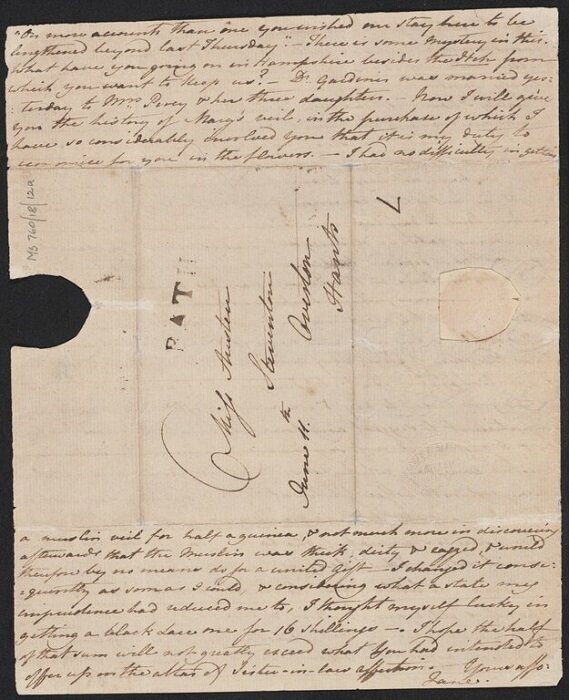 "On more accounts than one you wished our stay here to be
lengthened beyond last Thursday" – There is some Mystery in this.
What have you going on in Hampshire besides the Itch from
which you want to keep us? – Dr. Gardiner was married yes-
terday to Mrs. Percy & her three daughters. – Now I will give
you the history of Mary's veil, in the purchase of which I
have so considerably involved you that it is my duty to
economise for you in the flowers. – I had no difficulty in getting
MS 760/18/12a
BATH
Miss Austen
Steventon
Overton
Hants
June 11.th
7
a muslin veil for half a guinea, & not much more in discovering
afterwards that the Muslin was thick, dirty & ragged, & would
therefore by no means do for a united Gift – I changed it conse-
-quently as soon as I could, & considering what a state my
imprudence had reduced me to, I thought myself lucky in
getting a black Lace one for 16 shillings –. I hope the half
of that sum will not greatly exceed what You had intended to
offer up on the altar of Sister-in-law affection. – Yours aff:
Jane.